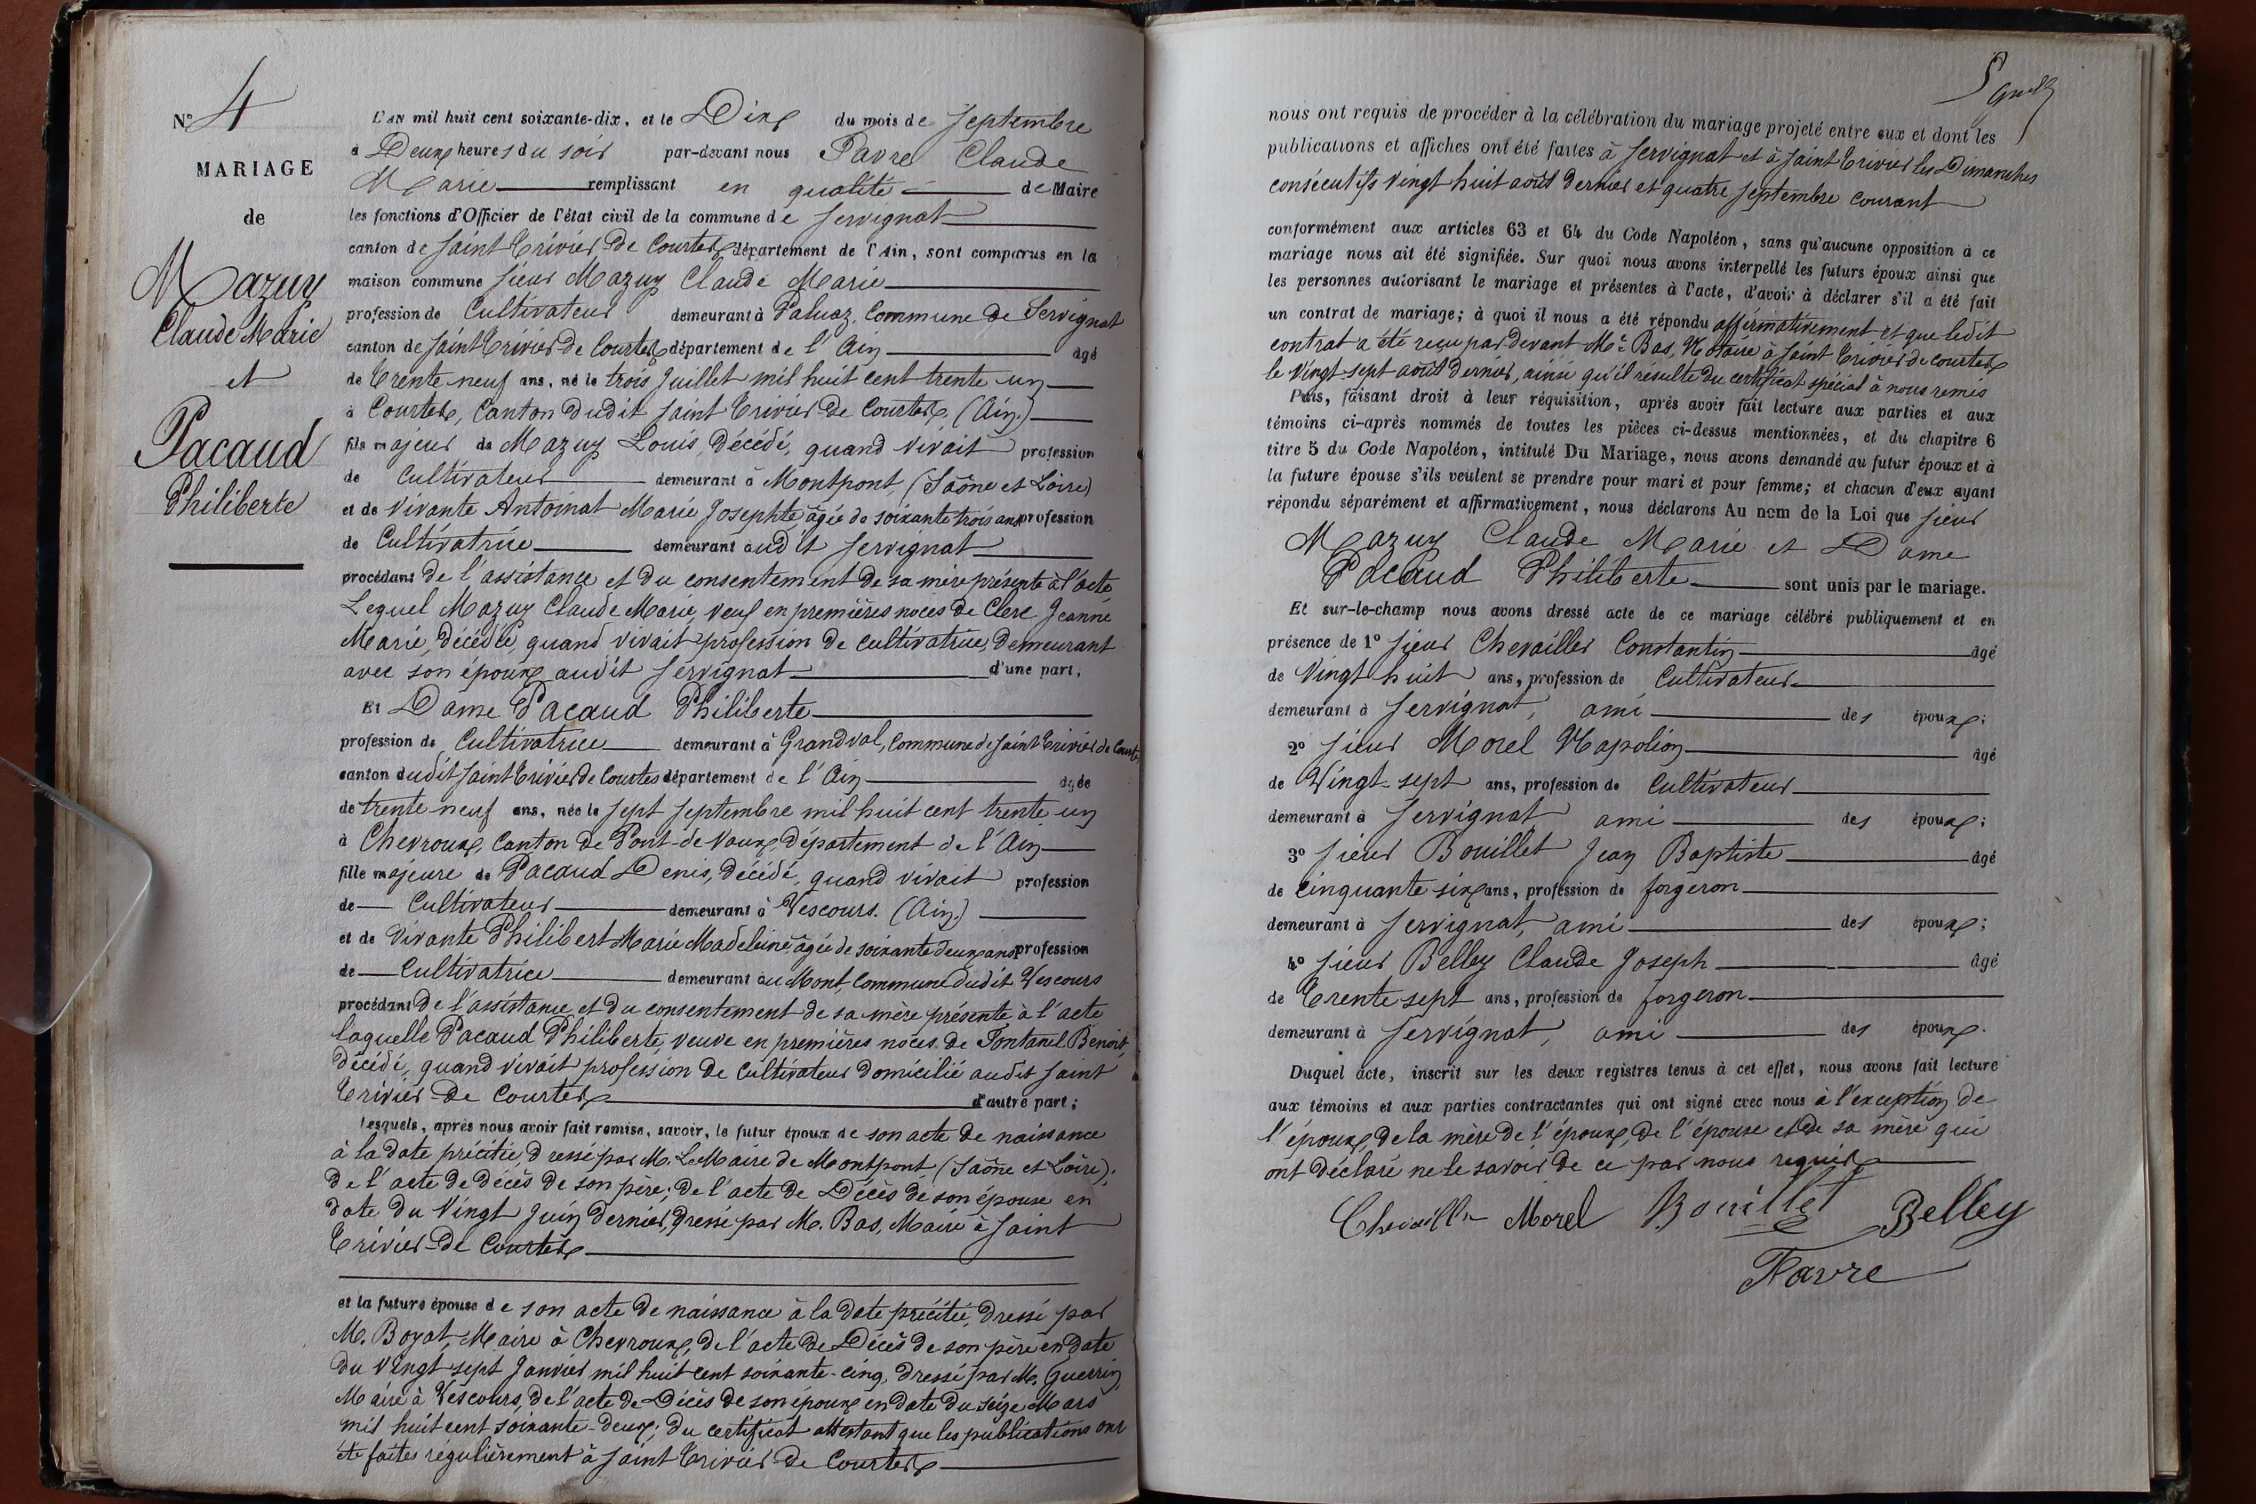 N° 4
MARIAGE
de
Mazuy
Claude Marie
et
Pacaud
Philiberte
L'AN mil huit cent soixante-dix, et le Dix du mois de Septembre
à Deux heures du soir par-devant nous Favre Claude
Marie remplissant en qualité de Maire
les fonctions d'Officier de l'état civil de la commune de Servignat
canton de Saint Trivier de Courtes département de l'Ain, sont comparus en la
maison commune Sieur Mazuy Claude Marie
profession de Cultivateur demeurant à Paluaz, Commune de Servignat
canton de Saint Trivier de Courtes département de l'Ain âgé
de trente neuf ans, né le trois Juillet mil huit cent trente un
à Courtes, Canton dudit Saint Trivier de Courtes (Ain.)
fils majeur de Mazuy Louis, décédé, quand vivait profession
de Cultivateur demeurant à Montpont, (Saône et Loire)
et de vivante Antoinat Marie Josephte âgée de soixante trois ans profession
de Cultivatrice demeurant audit Servignat
procédant de l'assistance et du consentement de sa mère présente à l'acte
Lequel Mazuy Claude Marie, veuf en premières noces de Clerc Jeanne
Marie, décédée, quand vivait profession de cultivatrice, demeurant
avec son époux audit Servignat d'une part,
Et Dame Pacaud Philiberte
profession de Cultivatrice demeurant à Grandval, Commune de Saint Trivier de Court
canton dudit Saint Trivier de Courtes département de l'Ain âgée
de trente neuf ans, née le sept Septembre mil huit cent trente un
à Chevroux, Canton de Pont-de-Vaux, département de l'Ain
fille majeure de Pacaud Denis, décédé, quand vivait profession
de Cultivateur demeurant à Vescours. (Ain.)
et de vivante Philibert Marie Madeleine âgée de soixante deux ans profession
de Cultivatrice demeurant au Mont, Commune dudit Vescours
procédant de l'assistance et du consentement de sa mère présente à l'acte
laquelle Pacaud Philiberte, veuve en premières noces de Fontanel Benoit,
décédé, quand vivait profession de cultivateur domicilié audit Saint
Trivier-de Courtes d'autre part;
lesquels, après nous avoir fait remise, savoir, le futur époux de son acte de naissance
à la date précitée dressé par M. Le Maire de Montpont (Saône et Loire);
de l'acte de décès de son père; de l'acte de Décès de son épouse en
date du Vingt Juin dernier, dressé par M. Bas, Maire à Saint
Trivier-de Courtes
et la future épouse de son acte de naissance à la date précitée, dressé par
M. Boyat, Maire à Chevroux, de l'acte de Décès de son père en date
du Vingt sept Janvier mil huit cent soixante-cinq, dressé par M. Guerrin
Maire à Vescours, de l'acte de Décès de son époux en date du Seize Mars
mil huit cent soixante-deux; du certificat attestant que les publications ont
été faites régulièrement à Saint Trivier-de Courtes
nous ont requis de procéder à la célébration du mariage projeté entre eux et dont les
publications et affiches ont été faites à Servignat et à Saint Trivier les Dimanches
consécutifs vingt huit août dernier et quatre Septembre courant
conformément aux articles 63 et 64 du Code Napoléon, sans qu'aucune opposition à ce
mariage nous ait été signifiée. Sur quoi nous avons interpellé les futurs époux ainsi que
les personnes autorisant le mariage et présentes à l'acte, d'avoir à déclarer s'il a été fait
un contrat de mariage; à quoi il nous a été répondu affirmativement et que ledit
contrat a été reçu par devant Me Bas, Notaire à Saint Trivier de Courtes
le Vingt-sept août dernier, ainsi qu'il résulte du certificat spécial à nous remis
Puis, faisant droit à leur réquisition, après avoir fait lecture aux parties et aux
témoins ci-après nommés de toutes les pièces ci-dessus mentionnées, et du chapitre 6
titre 5 du Code Napoléon, intitulé Du Mariage, nous avons demandé au futur époux et à
la future épouse s'ils veulent se prendre pour mari et pour femme; et chacun d'eux ayant
répondu séparément et affirmativement, nous déclarons Au nom de la Loi que Sieur
Mazuy Claude Marie et Dame
Pacaud Philiberte sont unis par le mariage.
Et sur-le-champ nous avons dressé acte de ce mariage célébré publiquement et en
présence de 1° Sieur Chevailler Constantin âgé
de Vingt huit ans, profession de Cultivateur
demeurant à Servignat, ami des époux;
2° Sieur Morel Napoléon âgé
de Vingt-sept ans, profession de Cultivateur
demeurant à Servignat ami des époux;
3° Sieur Bouillet Jean Baptiste âgé
de cinquante six ans, profession de forgeron
demeurant à Servignat, ami des époux;
4° Sieur Belley Claude Joseph âgé
de trente sept ans, profession de forgeron
demeurant à Servignat, ami des époux.
Duquel acte, inscrit sur les deux registres tenus à cet effet, nous avons fait lecture
aux témoins et aux parties contractantes qui ont signé avec nous à l'exception de
l'époux, de la mère de l'époux, de l'épouse et de sa mère qui
ont déclaré ne le savoir de ce par nous requis
Chevailler Morel Bouillet Belley
Favre